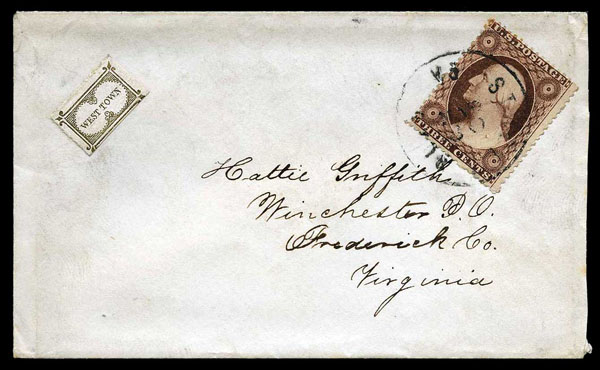 WEST TOWN
U.S. POSTAGE
THREE CENTS
Hattie Griffith
Winchester P.O.
Frederick Co.
Virginia